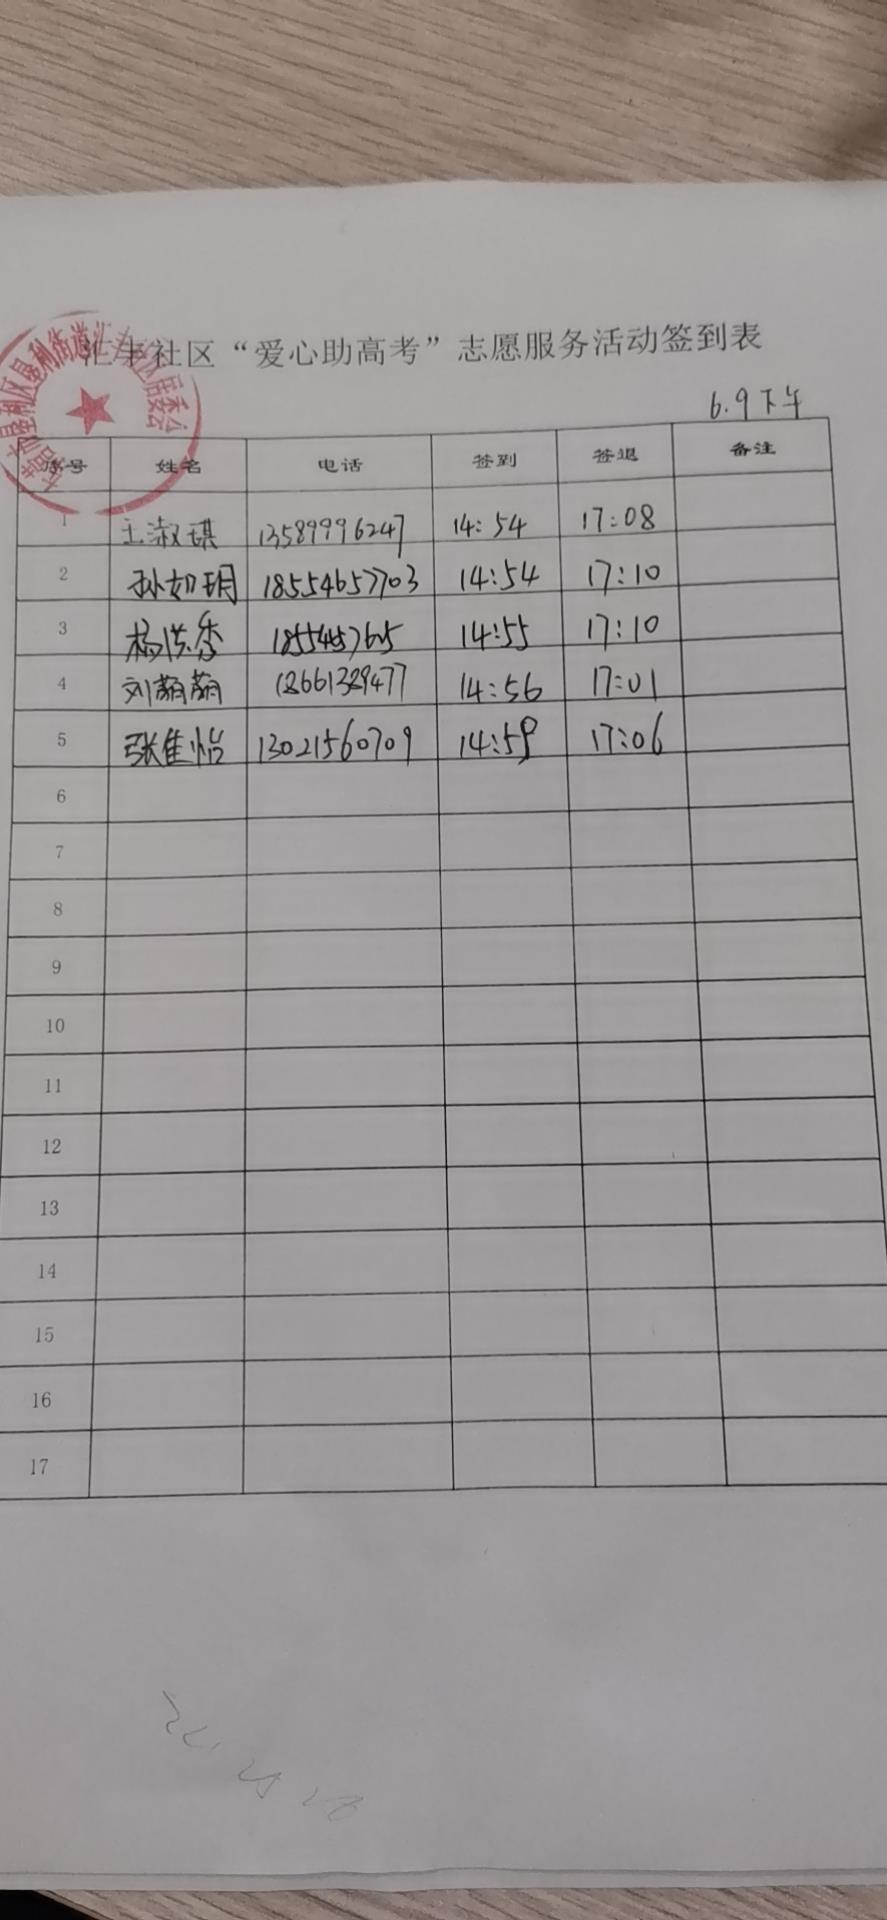 汇丰社区“爱心助高考”志愿服务活动签到表
6.9下午
序号 姓名 电话 签到 签退 备注
1 王淑琪 13589996247 14:54 17:08
2 孙如玥 18554657703 14:54 17:10
3 杨洪秀 14:55 17:10
4 刘萌萌 18661389477 14:56 17:01
5 张佳怡 13021560709 14:59 17:06
6
7
8
9
10
11
12
13
14
15
16
17